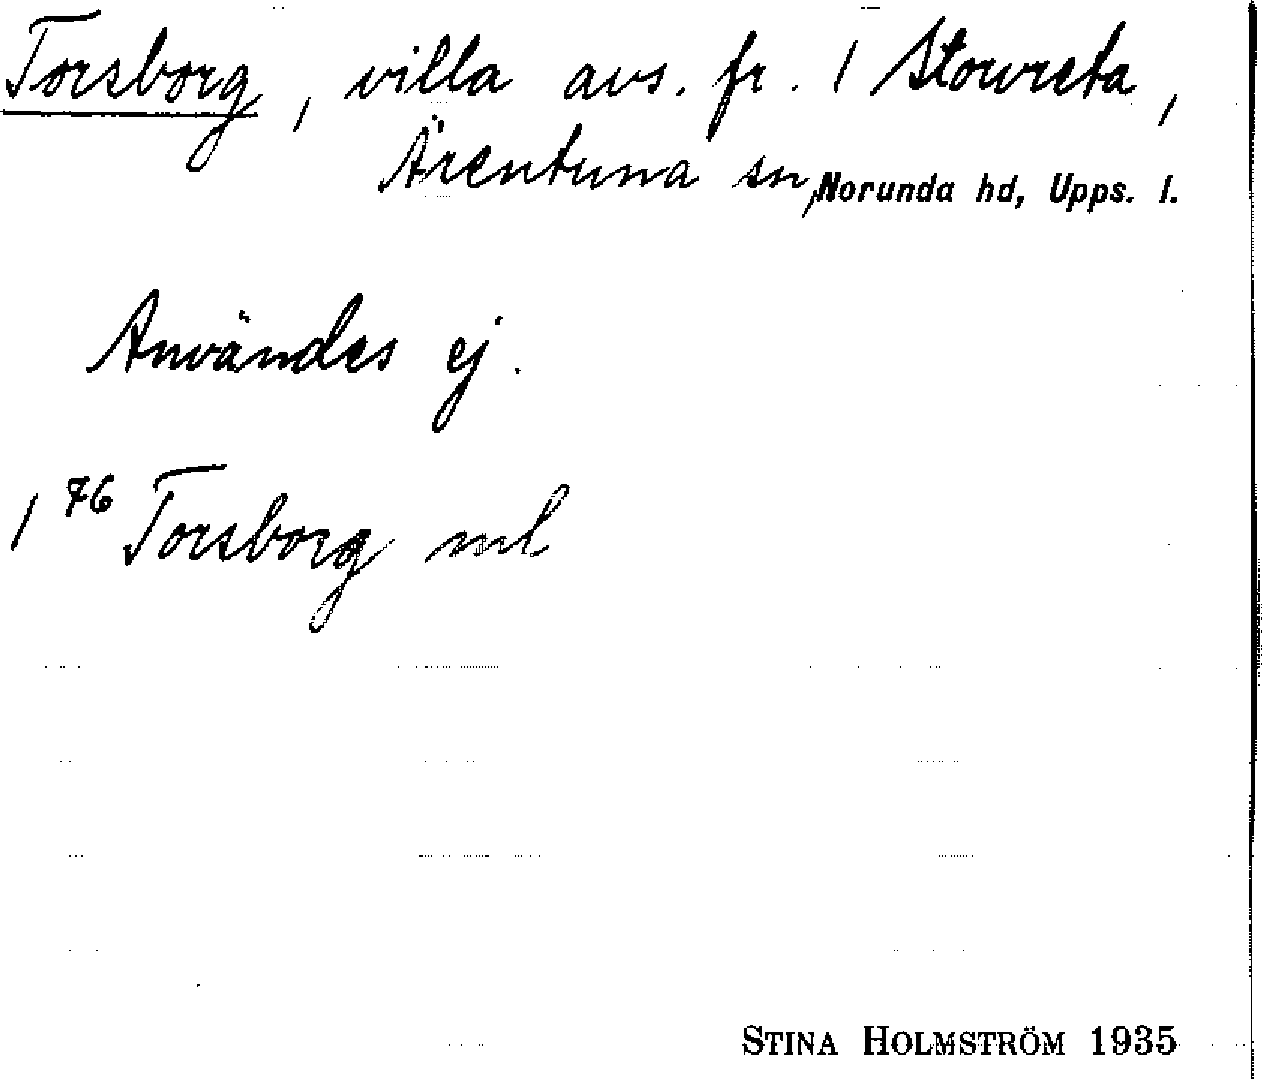 Torsborg, villa avs. fr. 1 Storvreta,
Ärentuna sn, Norunda hd, Upps. l.
Användes ej.
1 76 Torsborg ml
STINA HOLMSTRÖM 1935